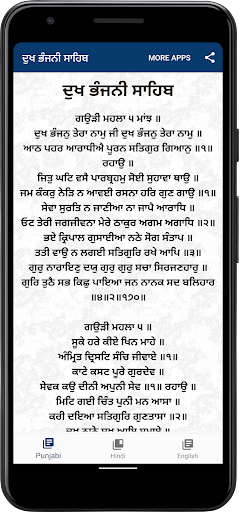 ਦੁਖ ਭੰਜਨੀ ਸਾਹਿਬ
MORE APPS
ਦੁਖ ਭੰਜਨੀ ਸਾਹਿਬ
ਗਉੜੀ ਮਹਲਾ ੫ ਮਾਂਝ ॥
ਦੁਖ ਭੰਜਨੁ ਤੇਰਾ ਨਾਮੁ ਜੀ ਦੁਖ ਭੰਜਨੁ ਤੇਰਾ ਨਾਮੁ ॥
ਆਠ ਪਹਰ ਆਰਾਧੀਐ ਪੂਰਨ ਸਤਿਗੁਰ ਗਿਆਨੁ ॥੧॥
ਰਹਾਉ ॥
ਜਿਤੁ ਘਟਿ ਵਸੈ ਪਾਰਬ੍ਰਹਮੁ ਸੋਈ ਸੁਹਾਵਾ ਥਾਉ ॥
ਜਮ ਕੰਕਰੁ ਨੇੜਿ ਨ ਆਵਈ ਰਸਨਾ ਹਰਿ ਗੁਣ ਗਾਉ ॥੧॥
ਸੇਵਾ ਸੁਰਤਿ ਨ ਜਾਣੀਆ ਨਾ ਜਾਪੈ ਆਰਾਧਿ ॥
ਓਟ ਤੇਰੀ ਜਗਜੀਵਨਾ ਮੇਰੇ ਠਾਕੁਰ ਅਗਮ ਅਗਾਧਿ ॥੨॥
ਭਏ ਕ੍ਰਿਪਾਲ ਗੁਸਾਈਆ ਨਠੇ ਸੋਗ ਸੰਤਾਪ ॥
ਤਤੀ ਵਾਉ ਨ ਲਗਈ ਸਤਿਗੁਰਿ ਰਖੇ ਆਪਿ ॥੩॥
ਗੁਰੁ ਨਾਰਾਇਣੁ ਦਯੁ ਗੁਰੁ ਗੁਰੁ ਸਚਾ ਸਿਰਜਣਹਾਰੁ ॥
ਗੁਰਿ ਤੁਠੈ ਸਭ ਕਿਛੁ ਪਾਇਆ ਜਨ ਨਾਨਕ ਸਦ ਬਲਿਹਾਰ
॥੪॥੨॥੧੭੦॥
ਗਉੜੀ ਮਹਲਾ ੫ ॥
ਸੂਕੇ ਹਰੇ ਕੀਏ ਖਿਨ ਮਾਹੇ ॥
ਅੰਮ੍ਰਿਤ ਦ੍ਰਿਸਟਿ ਸੰਚਿ ਜੀਵਾਏ ॥੧॥
ਕਾਟੇ ਕਸਟ ਪੂਰੇ ਗੁਰਦੇਵ ॥
ਸੇਵਕ ਕਉ ਦੀਨੀ ਅਪੁਨੀ ਸੇਵ ॥੧॥ ਰਹਾਉ ॥
ਮਿਟਿ ਗਈ ਚਿੰਤ ਪੁਨੀ ਮਨ ਆਸਾ ॥
ਕਰੀ ਦਇਆ ਸਤਿਗੁਰਿ ਗੁਣਤਾਸਾ ॥੨॥
Punjabi
Hindi
English